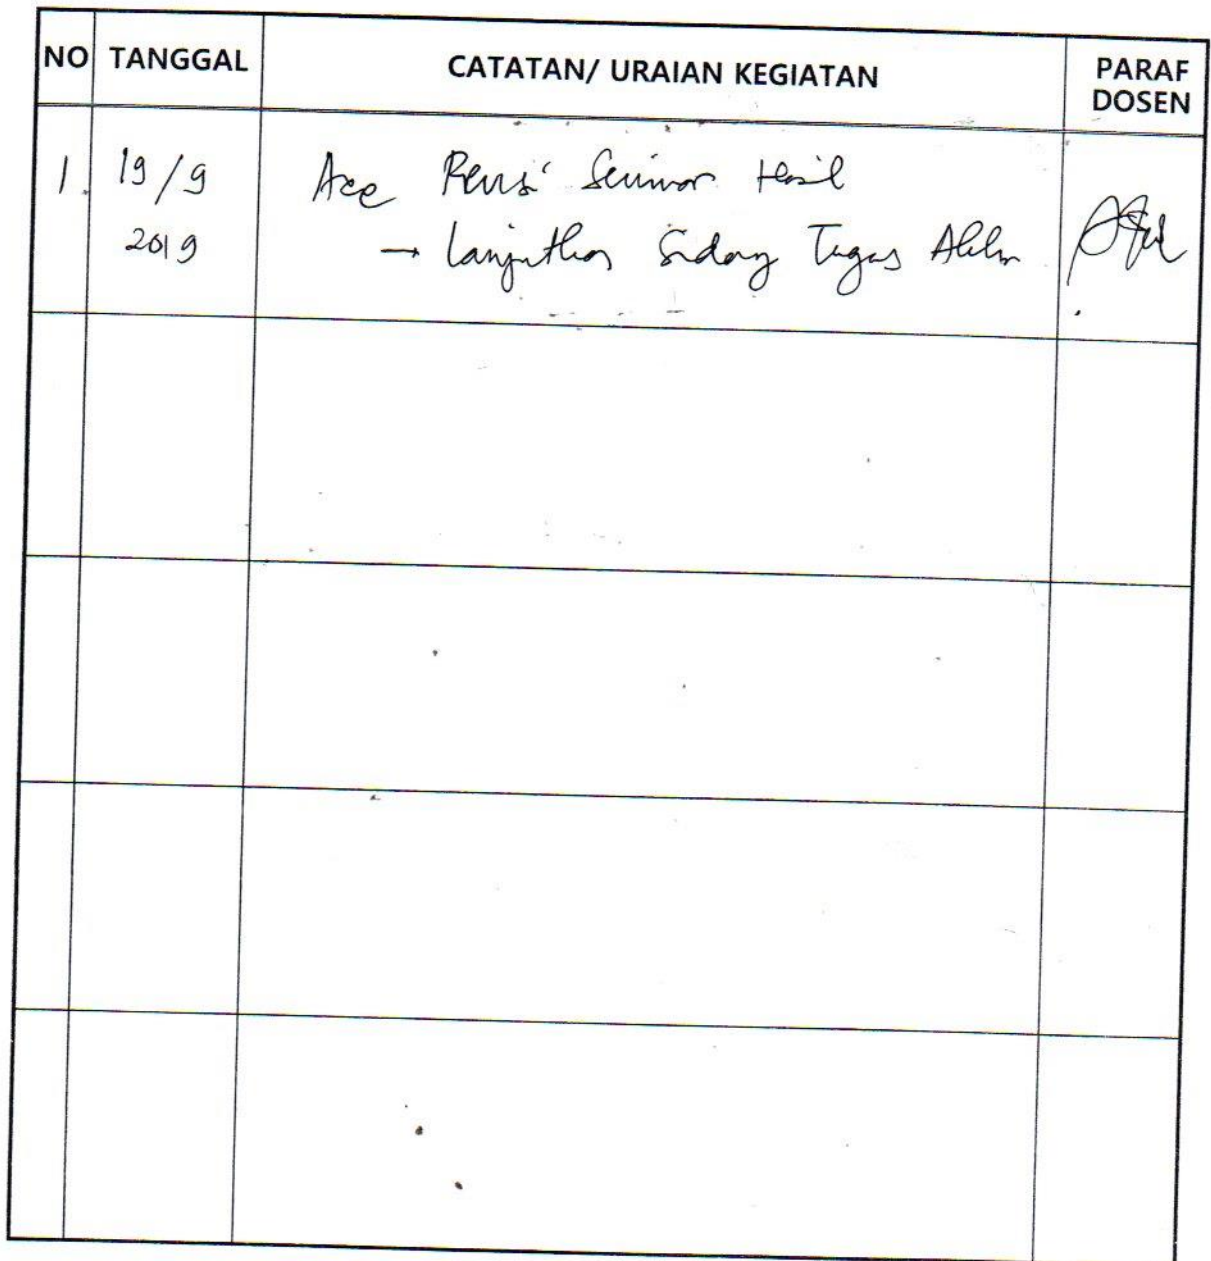 NO TANGGAL CATATAN/ URAIAN KEGIATAN PARAF DOSEN
1. 19/9 Acc Revisi Seminar Hasil
2019 → Lanjutkan Sidang Tugas Akhir